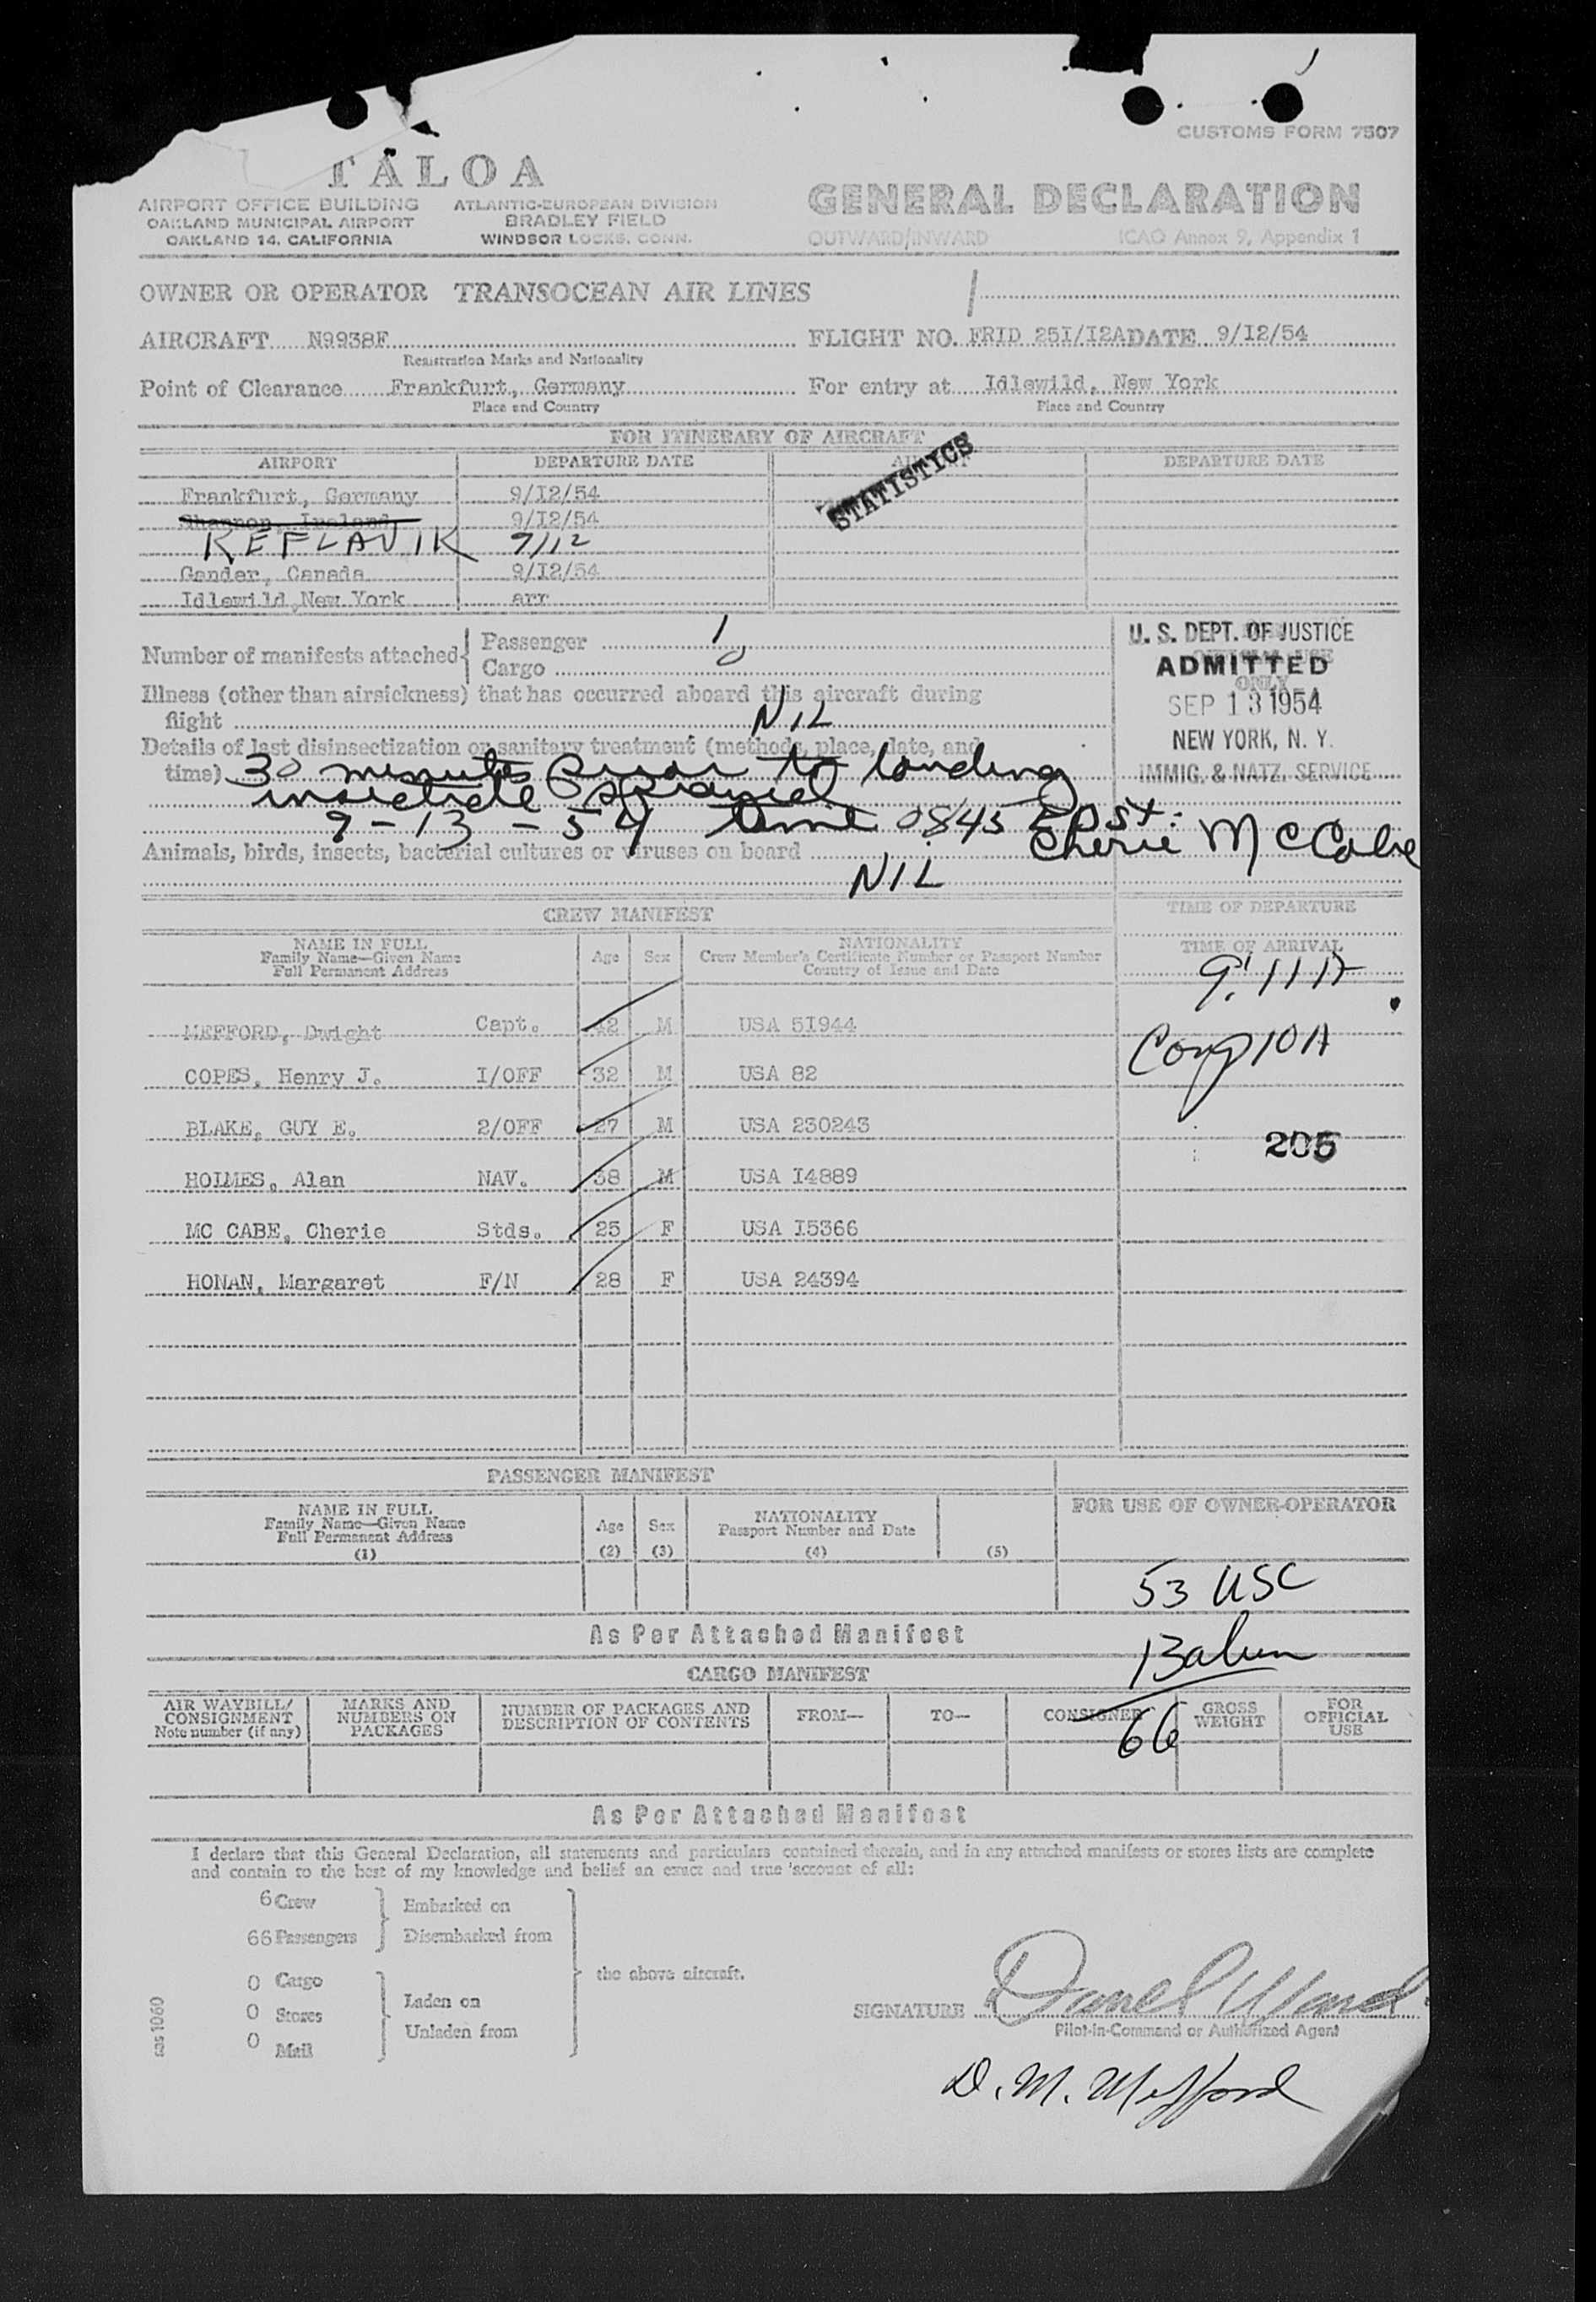 CUSTOMS FORM 7507
TALOA
AIRPORT OFFICE BUILDING
OAKLAND MUNICIPAL AIRPORT
OAKLAND 14, CALIFORNIA
ATLANTIC-EUROPEAN DIVISION
BRADLEY FIELD
WINDSOR LOCKS, CONN.
GENERAL DECLARATION
OUTWARD/INWARD ICAO Annex 9, Appendix 1
OWNER OR OPERATOR TRANSOCEAN AIR LINES
AIRCRAFT N9938F FLIGHT NO. FRID 251/12A DATE 9/12/54
Registration Marks and Nationality
Point of Clearance Frankfurt, Germany For entry at Idlewild, New York
Place and Country Place and Country
FOR ITINERARY OF AIRCRAFT
AIRPORT DEPARTURE DATE DEPARTURE DATE
STATISTICS
Frankfurt, Germany 9/12/54
Shannon, Ireland 9/12/54
KEFLAVIK 9/12
Gander, Canada 9/12/54
Idlewild, New York arr
Number of manifests attached Passenger 1
Cargo 0
U. S. DEPT. OF JUSTICE
ADMITTED
SEP 13 1954
NEW YORK, N. Y.
IMMIG. & NATZ. SERVICE
Illness (other than airsickness) that has occurred aboard this aircraft during
flight NIL
Details of last disinsectization or sanitary treatment (methods, place, date, and
time) 30 minutes prior to landing
insecticide sprayed
9-13-54 time 0845 EDST.
Cherie McCabe
Animals, birds, insects, bacterial cultures or viruses on board
NIL
CREW MANIFEST
TIME OF DEPARTURE
NAME IN FULL
Family Name—Given Name
Full Permanent Address
Age Sex
NATIONALITY
Crew Member's Certificate Number or Passport Number
Country of Issue and Date
TIME OF ARRIVAL
9:11 A
MEFFORD, Dwight Capt. 42 M USA 51944
COPES, Henry J. 1/OFF 32 M USA 82
BLAKE, GUY E. 2/OFF 27 M USA 230243
HOLMES, Alan NAV. 38 M USA 14889
MC CABE, Cherie Stds. 25 F USA 15366
HONAN, Margaret F/N 28 F USA 24394
10A
205
PASSENGER MANIFEST
NAME IN FULL
Family Name—Given Name
Full Permanent Address
(1)
Age
(2)
Sex
(3)
NATIONALITY
Passport Number and Date
(4)
(5)
FOR USE OF OWNER-OPERATOR
53 USC
As Per Attached Manifest
13 alien
66
CARGO MANIFEST
AIR WAYBILL/
CONSIGNMENT
Note number (if any)
MARKS AND
NUMBERS ON
PACKAGES
NUMBER OF PACKAGES AND
DESCRIPTION OF CONTENTS
FROM—
TO—
CONSIGNEE
GROSS
WEIGHT
FOR
OFFICIAL
USE
As Per Attached Manifest
I declare that this General Declaration, all statements and particulars contained therein, and in any attached manifests or stores lists are complete
and contain to the best of my knowledge and belief an exact and true account of all:
6 Crew
66 Passengers
Embarked on
Disembarked from
0 Cargo
0 Stores
0 Mail
Laden on
Unladen from
the above aircraft.
sas 1060
SIGNATURE
Pilot-in-Command or Authorized Agent
D. M. Mefford